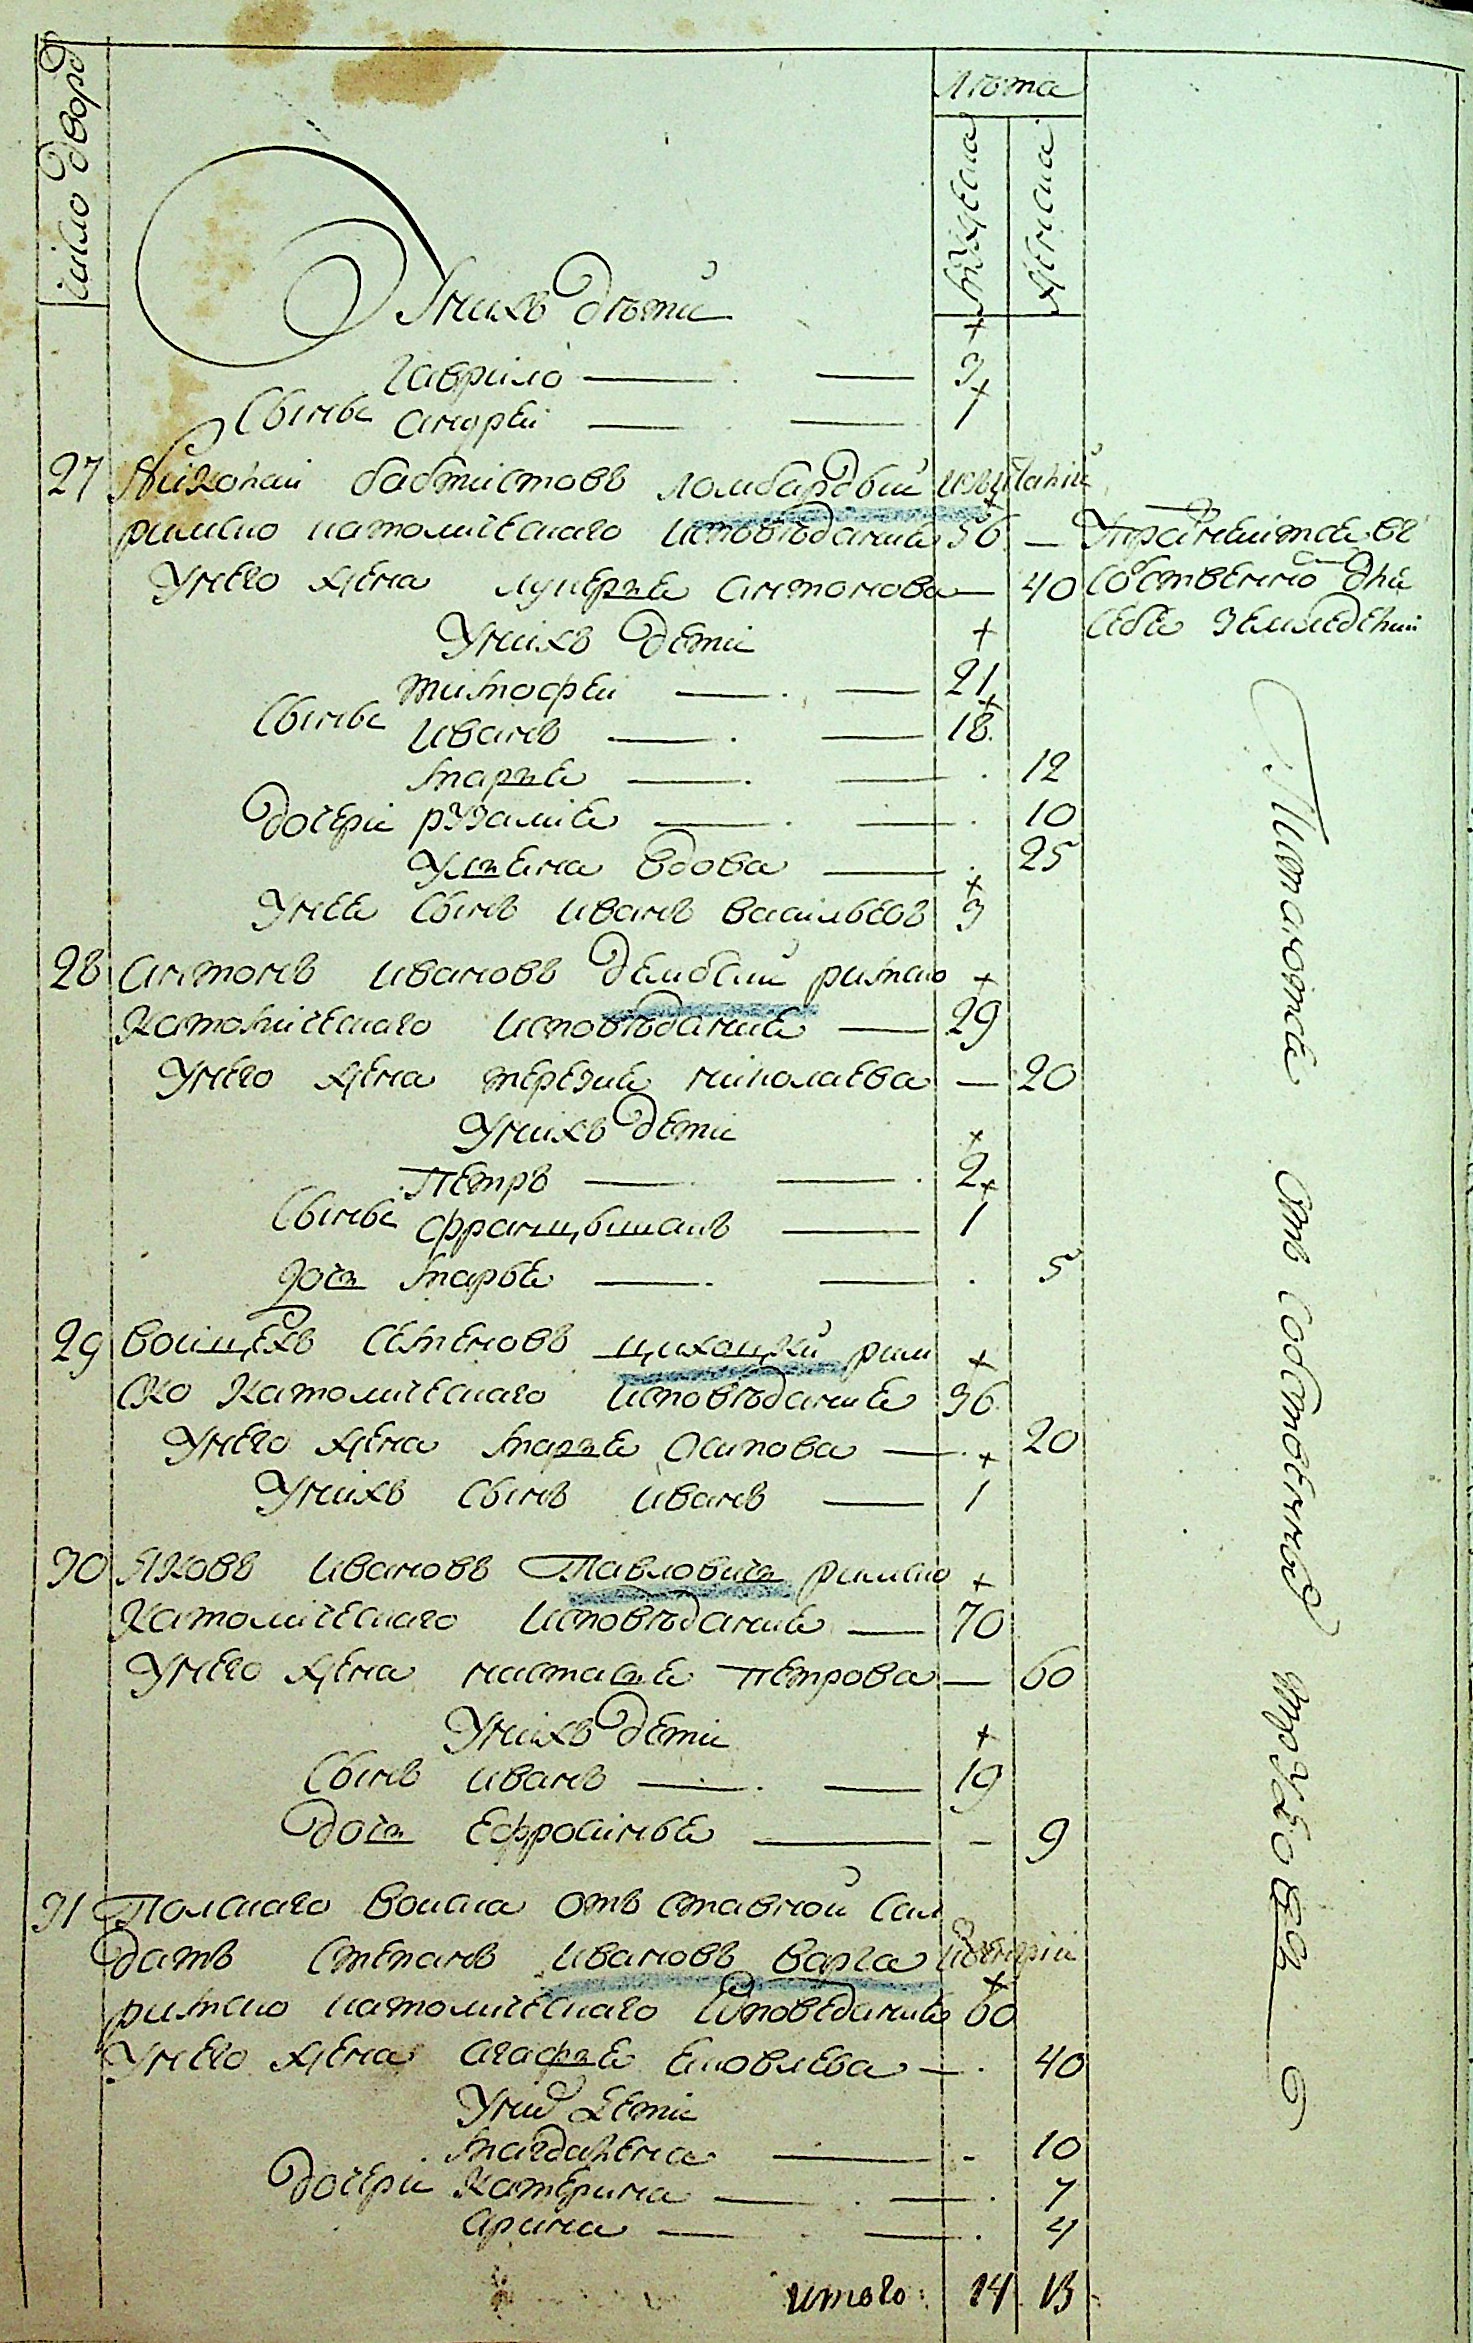 число дворо
Лѣта
Мужеска
Женска
Унихъ дѣти
Гаврило 3
Сынве Андреи 1
27 Николаи Бабтистовъ Ломбардскій изъ Італіи
римско католическаго исповѣдания 56 — Упражняится въ
Унего жена Лукерия Антонова — 40 собственно для
Унихъ дети себя земледелии
Тимофеи 21
Сынве Иванъ 18
Мария 12
Дочери Рузалия 10
Ульяна вдова 25
Унее сынъ Иванъ Васильевъ 3
28 Антонъ Ивановъ Дембскии римско
католическаго исповѣдания — 29
Унего жена Терезия Николаева — 20
Унихъ дети
Петръ 2
Сынве Францышакъ 1
Дочь Марья 5
29 Воицехъ Семеновъ Цихоцкии рим
ско католическаго исповѣдания 36
Унего жена Мария Осипова — 20
Унихъ сынъ Иванъ — 1
30 Яковъ Ивановъ Павловичь римско
католическаго исповѣдания — 70
Унего жена Настасья Петрова — 60
Унихъ дети
Сынъ Иванъ 19
Дочь Ефросинья 9
31 Полскаго воиска отъ ставной Сал
датъ Степанъ Ивановъ Варга извенгріи
римско католическаго исповедания 60
Унего жена Агафия Яковлева — 40
Унид дети
Магдалена 10
Дочери Катерина 7
Арина 4
итого: 14 13
Питаются отъ собственныхъ трудовъ